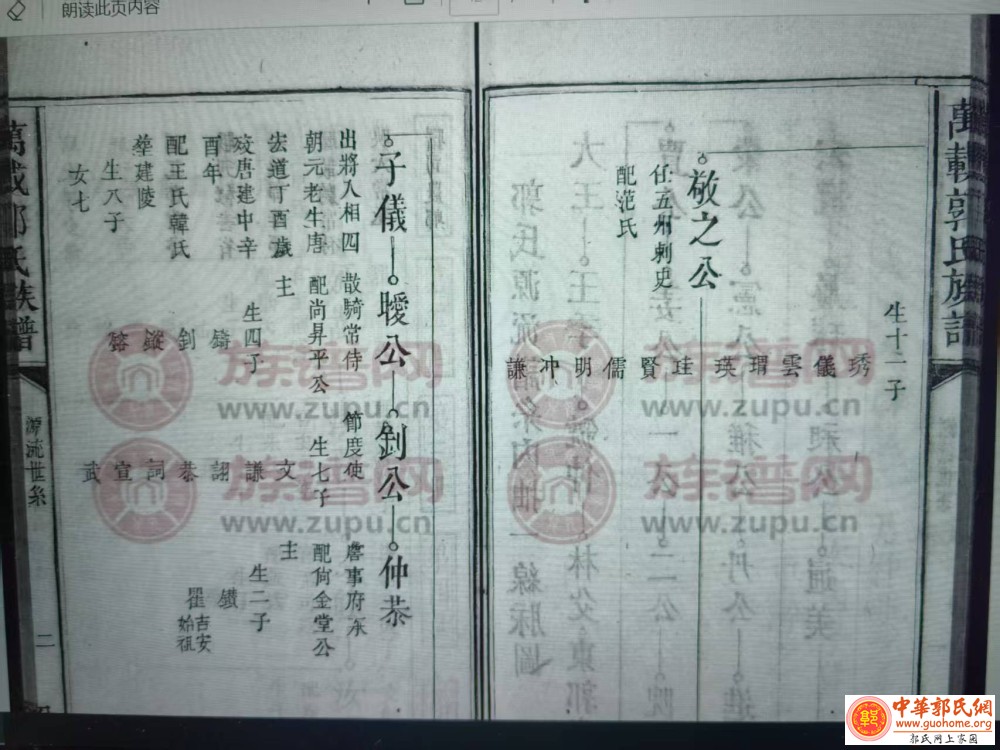 朗读此页内容
萬載郭氏族譜
生十二子
琇
儀
雲
瑁
瑛
珪
賢
儒
明
冲
謙
敬之公
任五州刺史
配范氏
子儀
出將入相四
朝元老生唐
去道丁酉歲
歿唐建中辛
酉年
配王氏韓氏
塟建陵
生八子
女七
曖公
散騎常侍
配尚昇平公
主
生四子
鑄
釗
鏦
釗公
節度使
生七子
文
謙
詡
恭
詞
宣
武
仲恭
詹事府
配尚金堂公
主
生二子
吉安
始祖
萬載郭氏族譜
源流世系
二
族譜网
www.zupu.cn
族譜网
www.zupu.cn
族譜网
www.zupu.cn
族譜网
www.zupu.cn
中華郭氏網
www.guohome.org
郭氏网上家園